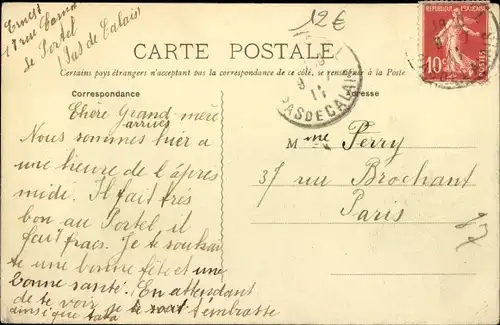 Ernest
17 rue
Le Portel
Pas de Calais
12€
CARTE POSTALE
Certains pays étrangers n'acceptant pas la correspondance de ce côté, se renseigner à la Poste
Correspondance
Adresse
PAS DE CALAIS
10c
POSTES
Chère Grand-mère
Nous sommes arrivés hier a
une heure de l'âpres
midi. Il fait très
bon au Portel il
fait frais. Je te souhai
te une bonne fête et une
bonne santé. En attendant
de te voir je t'embrasse
ainsi que tata
Mme Perry
37 rue Brochant
Paris
17